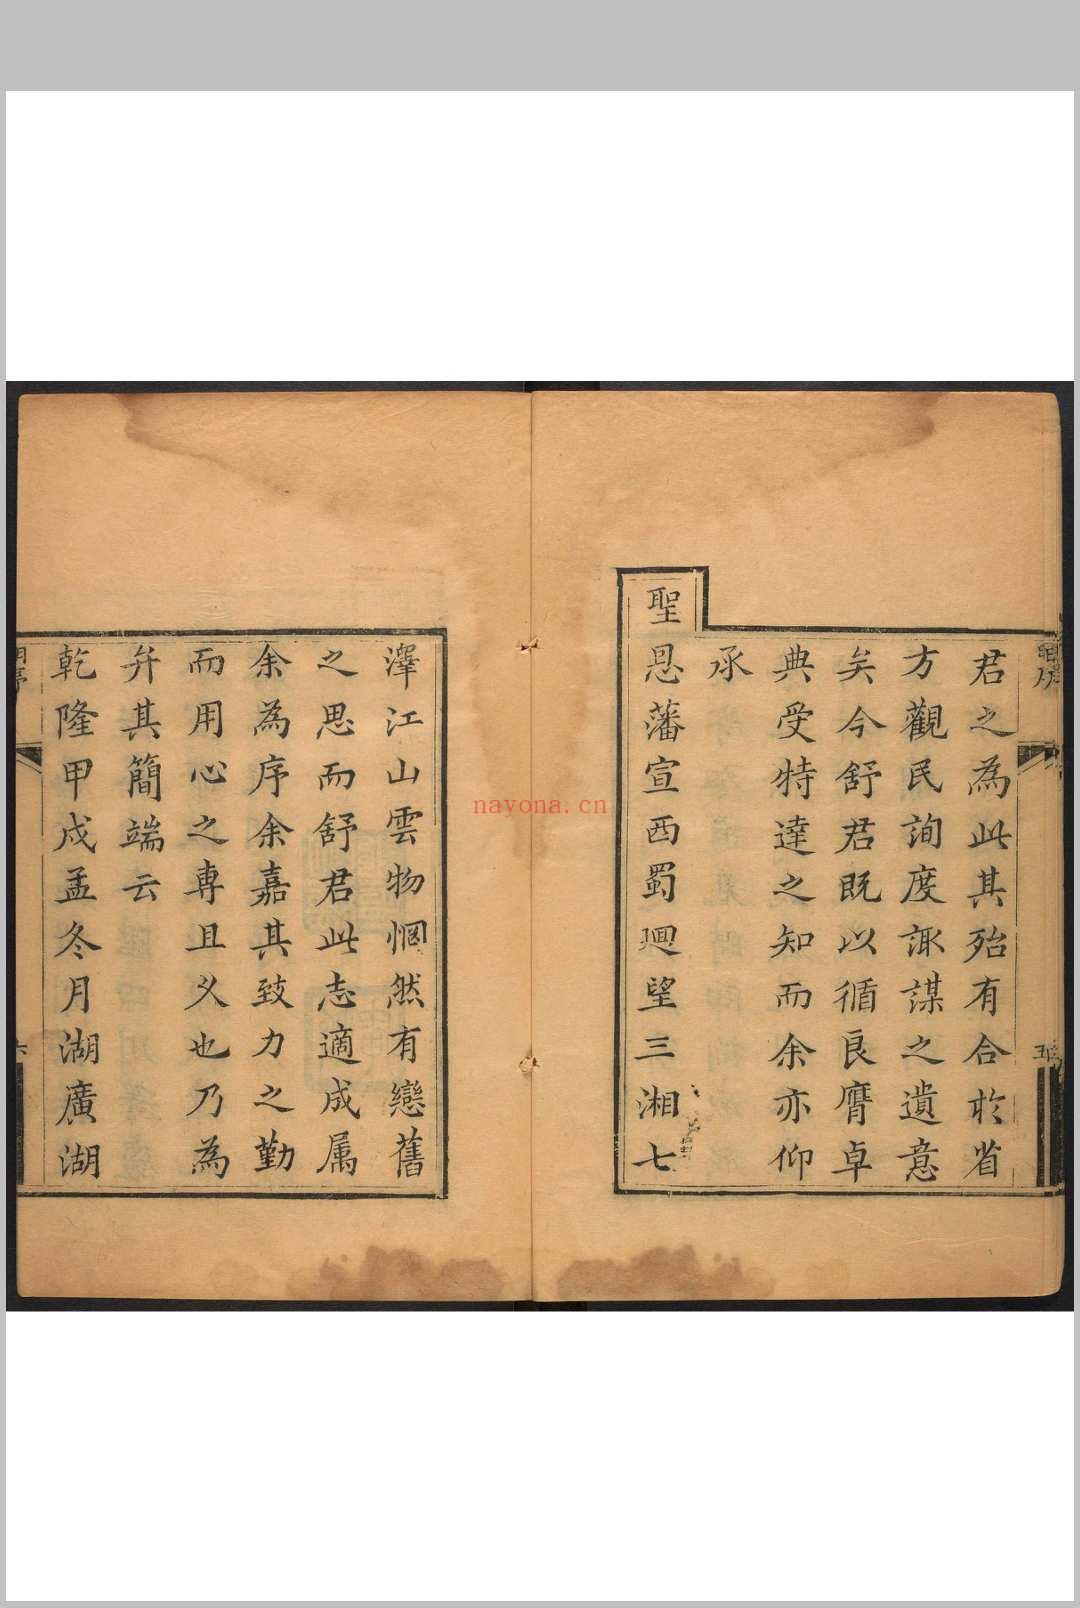 君之為此其殆有合於省
方觀民詢度諏謀之遺意
矣今舒君既以循良膺卓
典受特達之知而余亦仰
承
聖恩藩宣西蜀廻望三湘七
澤江山雲物惘然有戀舊
之思而舒君此志適成属
余為序余嘉其致力之勤
而用心之專且久也乃為
弁其簡端云
乾隆甲戌孟冬月湖廣湖
五
六
nayona.cn